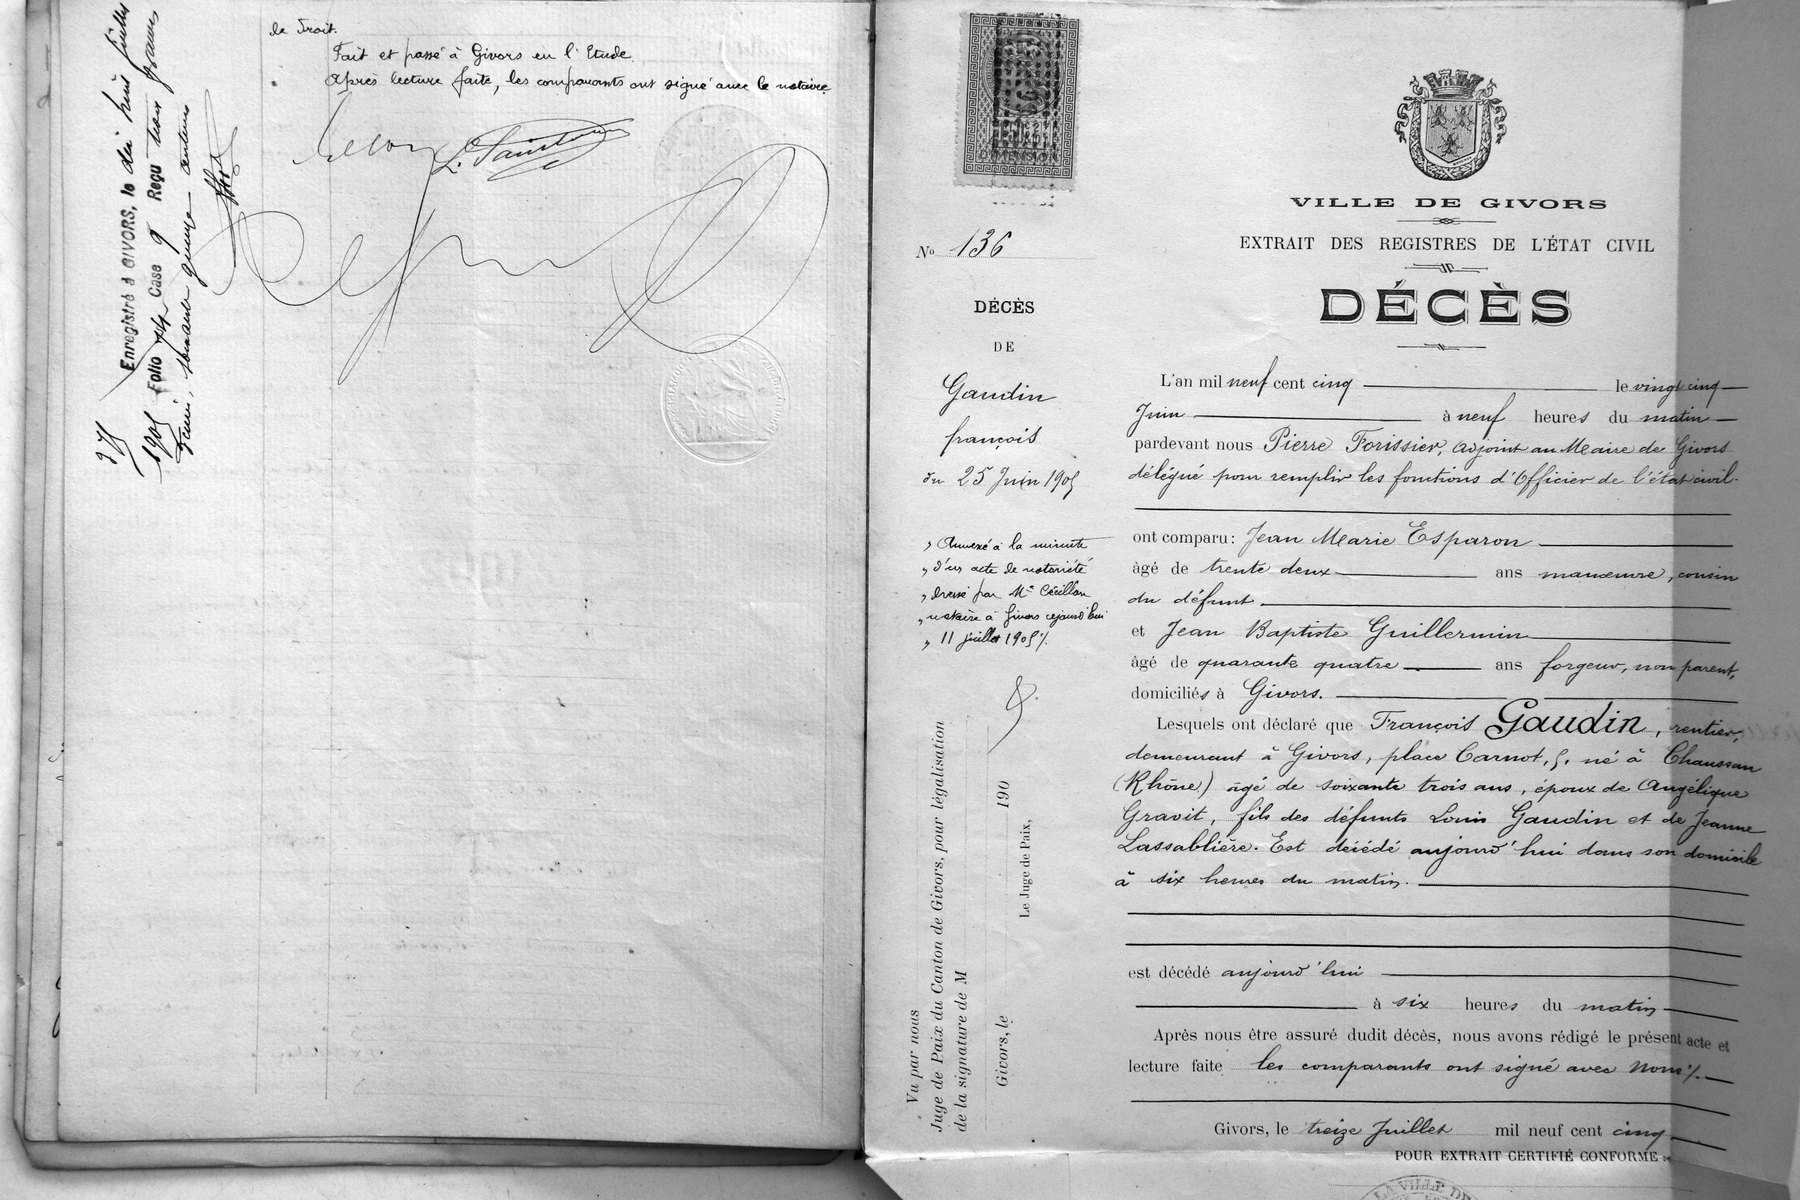 de droit.
Fait et passé à Givors en l'Etude
Après lecture faite, les comparants ont signé avec le notaire
Enregistré à GIVORS, le dix huit juillet
1905 Folio Case 9 Reçu trois francs
soixante quinze centimes
VILLE DE GIVORS
EXTRAIT DES REGISTRES DE L'ÉTAT CIVIL
DÉCÈS
No 136
DÉCÈS
DE
Gaudin
françois
Du 25 Juin 1905
" Annexé à la minute
" d'un acte de notoriété
" dressé par Me Cécillon
" notaire à Givors cejourd'hui
" 11 juillet 1905 %.
Vu par nous
Juge de Paix du Canton de Givors, pour légalisation
de la signature de M
Givors, le 190
Le Juge de Paix,
L'an mil neuf cent cinq le vingt cinq
Juin à neuf heures du matin
pardevant nous Pierre Forissier, adjoint au Maire de Givors
délégué pour remplir les fonctions d'Officier de l'état civil.
ont comparu: Jean Marie Esparon
âgé de trente deux ans manœuvre, cousin
du défunt
et Jean Baptiste Guillermin
âgé de quarante quatre ans forgeur, non parent,
domiciliés à Givors.
Lesquels ont déclaré que François Gaudin, rentier,
demeurant à Givors, place Carnot, 5, né à Chaussan
(Rhône) âgé de soixante trois ans, époux de Angélique
Gravit, fils des défunts Louis Gaudin et de Jeanne
Lassablière. Est décédé aujourd'hui dans son domicile
à six heures du matin.
est décédé aujourd'hui
à six heures du matin
Après nous être assuré dudit décès, nous avons rédigé le présent acte et
lecture faite les comparants ont signé avec Nous %.
Givors, le treize Juillet mil neuf cent cinq
POUR EXTRAIT CERTIFIÉ CONFORME:
LA VILLE DE